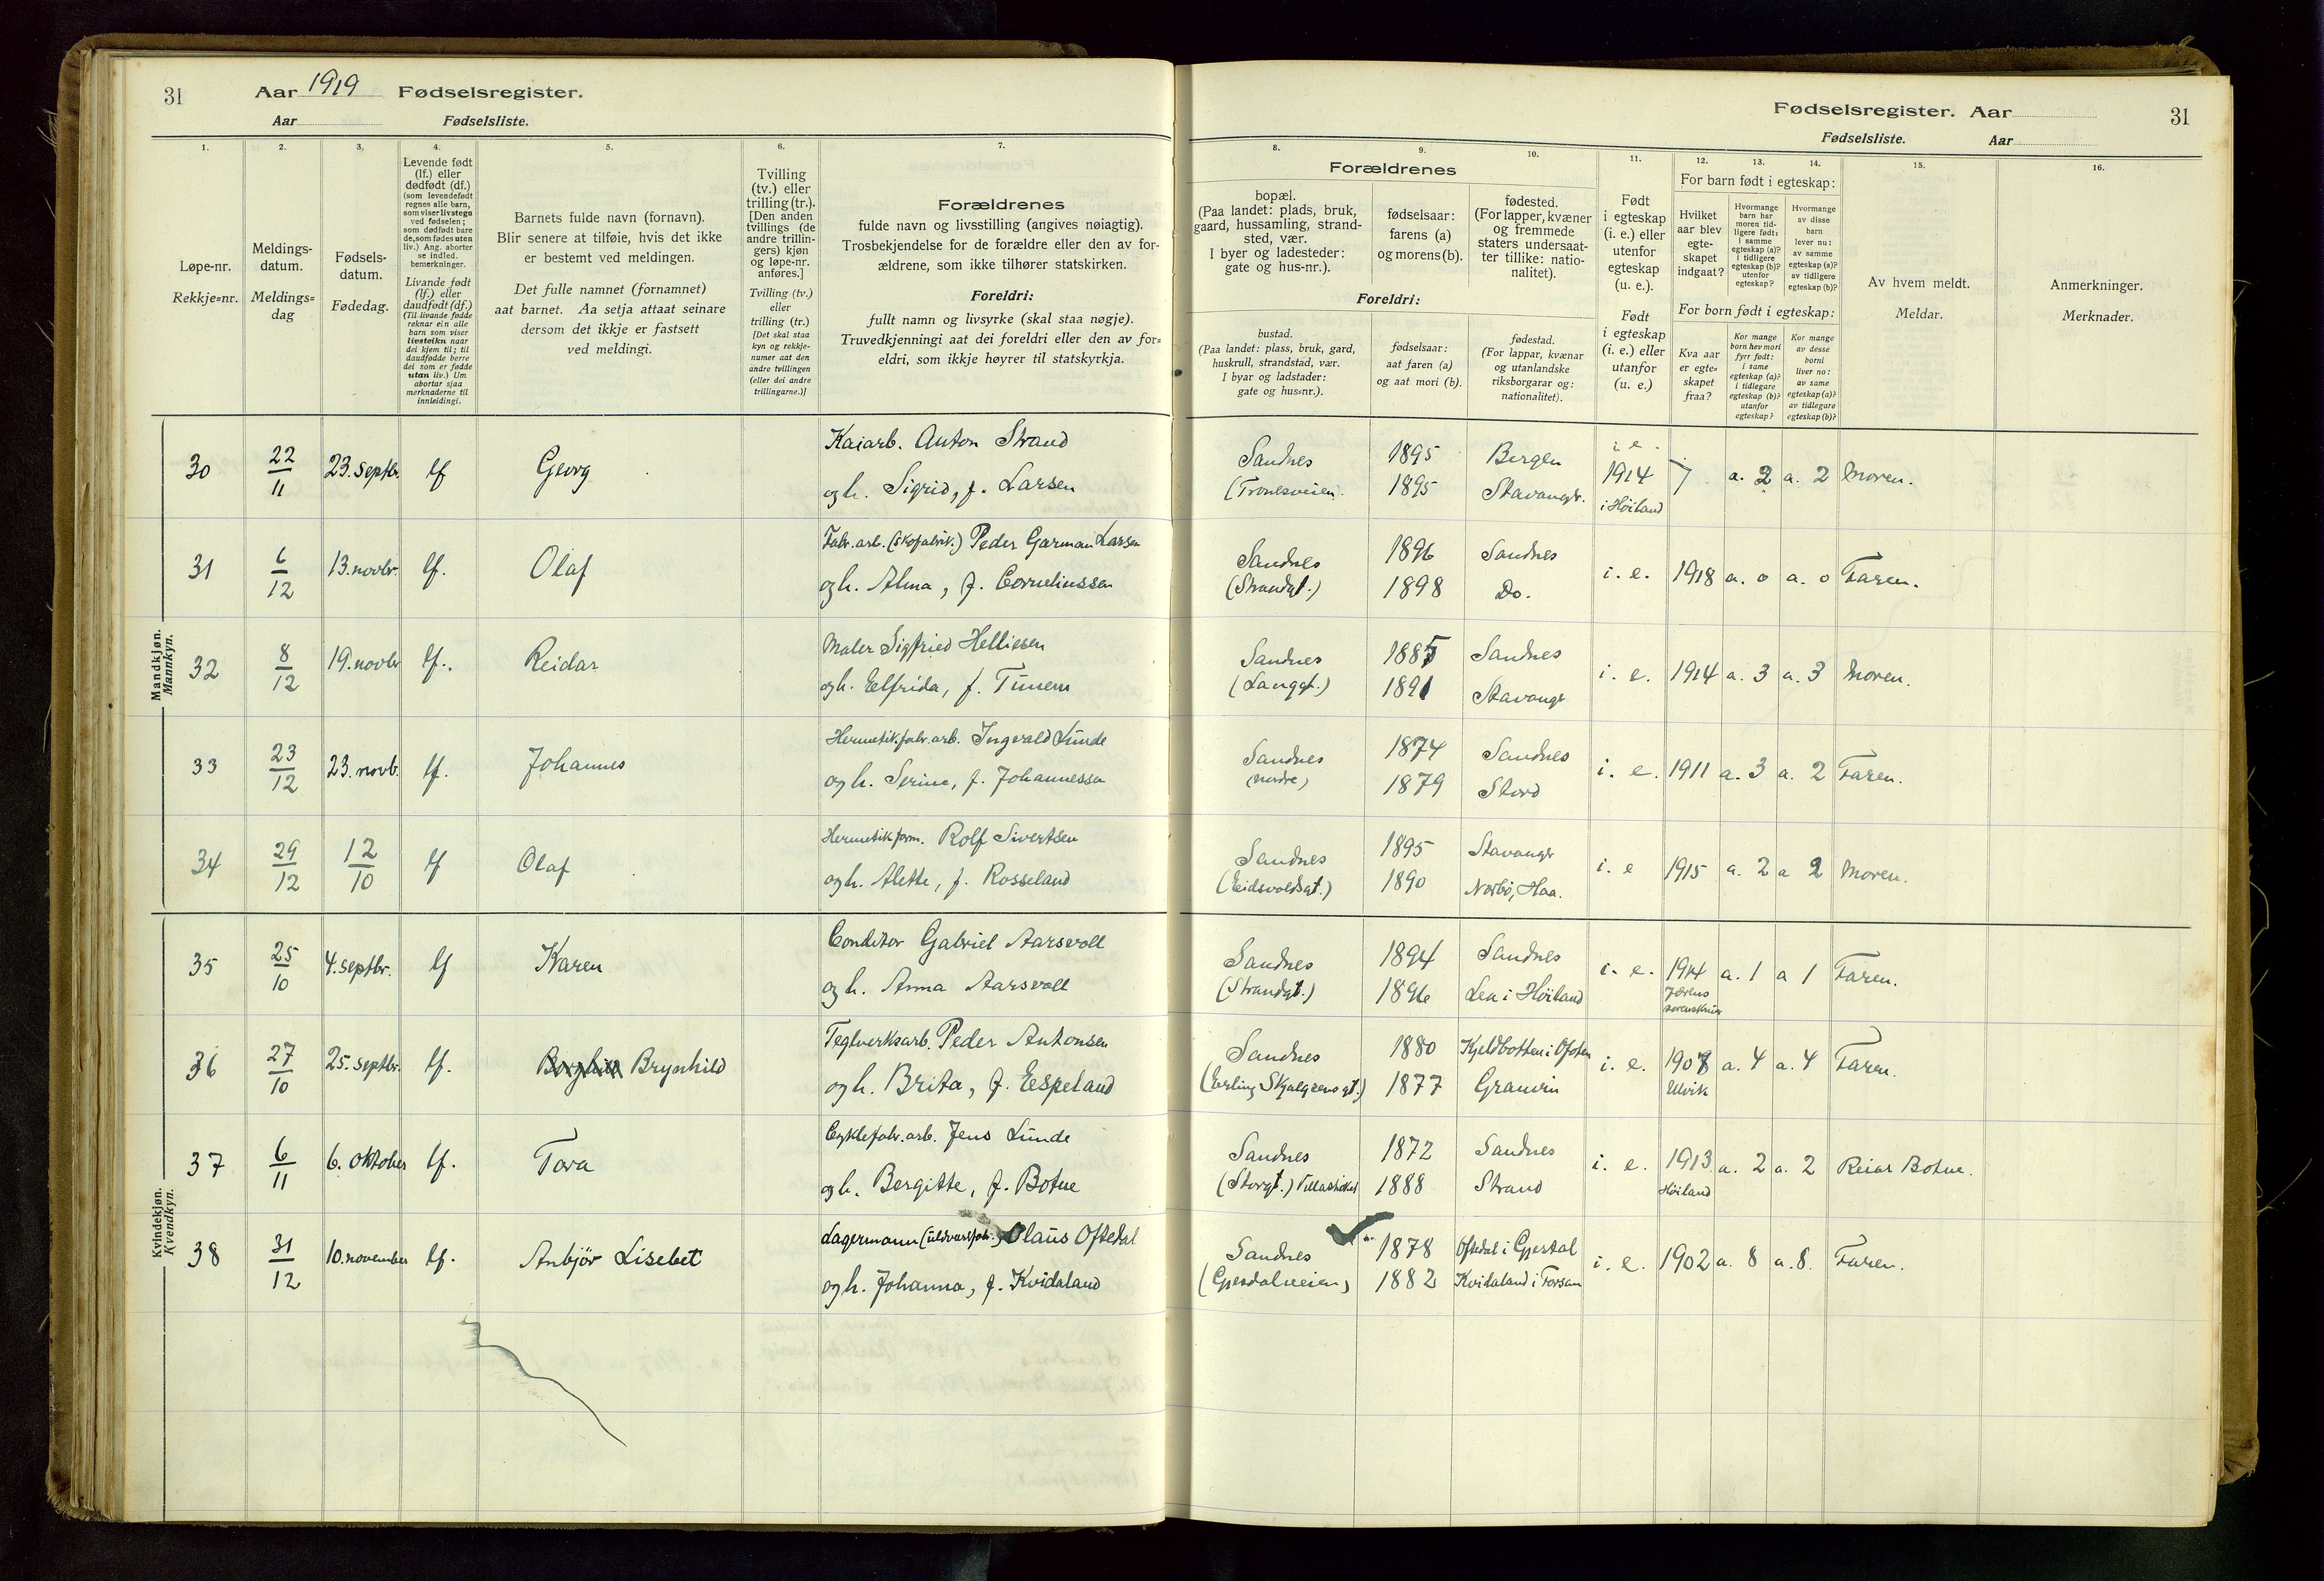 31 Aar 1919 Fødselsregister.
Aar Fødselsliste.
Fødselsregister. Aar 31
Fødselsliste. Aar
1. 2. 3. 4. 5. 6. 7. 8. 9. 10. 11. 12. 13. 14. 15. 16.
Løpe-nr.
Rekkje=nr.
Meldings-
datum.
Meldings=
dag
Fødsels-
datum.
Fødedag.
Levende født
(lf.) eller
dødfødt (df.)
(som levendefødt
regnes alle barn,
som viser livstegn
ved fødselen;
som dødfødt bare
de, som fødes uten
liv.) Ang. aborter
se indled.
bemerkninger.
Livande født
(lf.) eller
daudfødt (df.)
(Til livande fødde
reknar ein alle
barn som viser
livsteikn naar
dei kjem til; til
daudfødde berre
dei som er fødde
utan liv.) Um
abortar sjaa
merknaderne til
innleidingi.
Barnets fulde navn (fornavn).
Blir senere at tilføie, hvis det ikke
er bestemt ved meldingen.
Det fulle namnet (fornamnet)
aat barnet. Aa setja attaat seinare
dersom det ikkje er fastsett
ved meldingi.
Tvilling
(tv.) eller
trilling (tr.).
[Den anden
tvillings (de
andre trillin-
gers) kjøn
og løpe-nr.
anføres.]
Tvilling (tv.)
eller
trilling (tr.)
[Det skal staa
kyn og rekkje-
numer aat den
andre tvillingen
(eller dei andre
trillingarne.)]
Forældrenes
fulde navn og livsstilling (angives nøiagtig).
Trosbekjendelse for de forældre eller den av for-
ældrene, som ikke tilhører statskirken.
Foreldri:
fullt namn og livsyrke (skal staa nøgje).
Truvedkjenningi aat dei foreldri eller den av for=
eldri, som ikkje høyrer til statskyrkja.
Forældrenes
bopæl.
(Paa landet: plads, bruk,
gaard, hussamling, strand-
sted, vær.
I byer og ladesteder:
gate og hus-nr.).
Foreldri:
bustad.
(Paa landet: plass, bruk, gard,
huskrull, strandstad, vær.
I byar og ladstader:
gate og hus=nr.).
fødselsaar:
farens (a)
og morens (b).
fødselsaar:
aat faren (a)
og aat mori (b).
fødested.
(For lapper, kvæner
og fremmede
staters undersaat-
ter tillike: natio-
nalitet).
fødestad.
(For lappar, kvænar
og utanlandske
riksborgarar og:
nationalitet).
Født
i egteskap
(i. e.) eller
utenfor
egteskap
(u. e.).
Født
i egteskap
(i. e.) eller
utanfor
(u. e.)
For barn født i egteskap:
Hvilket
aar blev
egte-
skapet
indgaat?
Hvormange
barn har
moren tid-
ligere født:
i samme
egteskap (a)?
i tidligere
egteskap (b)?
utenfor
egteskap?
Hvormange
av disse
barn
lever nu:
av samme
egteskap (a)?
av tidligere
egteskap (b)?
For born født i egteskap:
Kva aar
er egte=
skapet
fraa?
Kor mange
born hev mori
fyrr født:
i same
egteskap (a)?
i tidlegare
egteskap (b)?
utanfor
egteskap?
Kor mange
av desse
borni
liver no:
av same
egteskap (a)?
av tidlegare
egteskap (b)?
Av hvem meldt.
Meldar.
Anmerkninger.
Merknader.
Mandkjøn.
Mankyn.
30 22/11 23. septbr. lf Georg Kaiarb. Anton Strand Sandnes 1895 Bergen i e. 1914 a. 2 a. 2 Moren.
og h. Sigrid, f. Larsen (Tronesveien. 1895 Stavangr. i Höiland
31 6/12 13. novbr. lf. Olaf Fabr. arb. (skofabrik.) Peder Garman Larsen Sandnes 1896 Sandnes i. e. 1918 a. 0 a. 0 Faren.
og h. Alma, f. Corneliussen (Strandgt.) 1898 Do.
32 8/12 19. novbr lf. Reidar Maler Sigfried Helliesen Sandnes 1885 Sandnes i. e. 1914 a. 3 a. 3 Moren.
og h. Elfrida, f. Tunem (Langgt.) 1891 Stavangr
33 23/12 23. novb. lf. Johannes Hermetik.fabr.arb. Ingvald Lunde Sandnes 1874 Sandnes i. e. 1911 a. 3 a. 2 Faren.
og h. Serine, f. Johannessen (Nordre) 1879 Stord
34 29/12 12/10 lf Olaf Hermetikform. Rolf Sivertsen Sandnes 1895 Stavangr i. e 1915 a. 2 a 2 Moren.
og h. Alette, f. Rosseland (Eidsvoldsgt.) 1890 Norbö, Haa.
Kvindekjøn.
Kvendkyn.
35 25/10 4. septbr. lf Karen Conditor Gabriel Aarsvoll Sandnes 1894 Sandnes i. e. 1914 a. 1 a 1 Faren.
og h. Anna Aarsvoll (Strandgt.) 1896 Lea i Höiland Jærens
36 27/10 25. septbr. lf. Borghild Brynhild Teglverksarb. Peder Antonsen Sandnes 1880 Kjeldbotten i Ofoten i. e. 1907 a. 4 a. 4 Faren.
og h. Brita, f. Espeland (Erling Skjalgsens gt.) 1877 Granvin Ulvik
37 6/11 6. Oktober lf. Tora Cyklefabr.arb. Jens Lunde Sandnes 1872 Sandnes i. e. 1913 a. 2 a. 2 Reiar Botne.
og h. Bergitte, f. Botne (Storgt.) 1888 Strand Höiland
38 31/12 10. november lf. Anbjör Lisebet Lagermann (uldvarefabr.) Olaus Oftedal Sandnes 1878 Oftedal i Gjestal i. e. 1902 a. 8 a. 8. Faren.
og h. Johanna, f. Kvidaland (Gjesdalveien) 1882 Kvitaland i Forsan